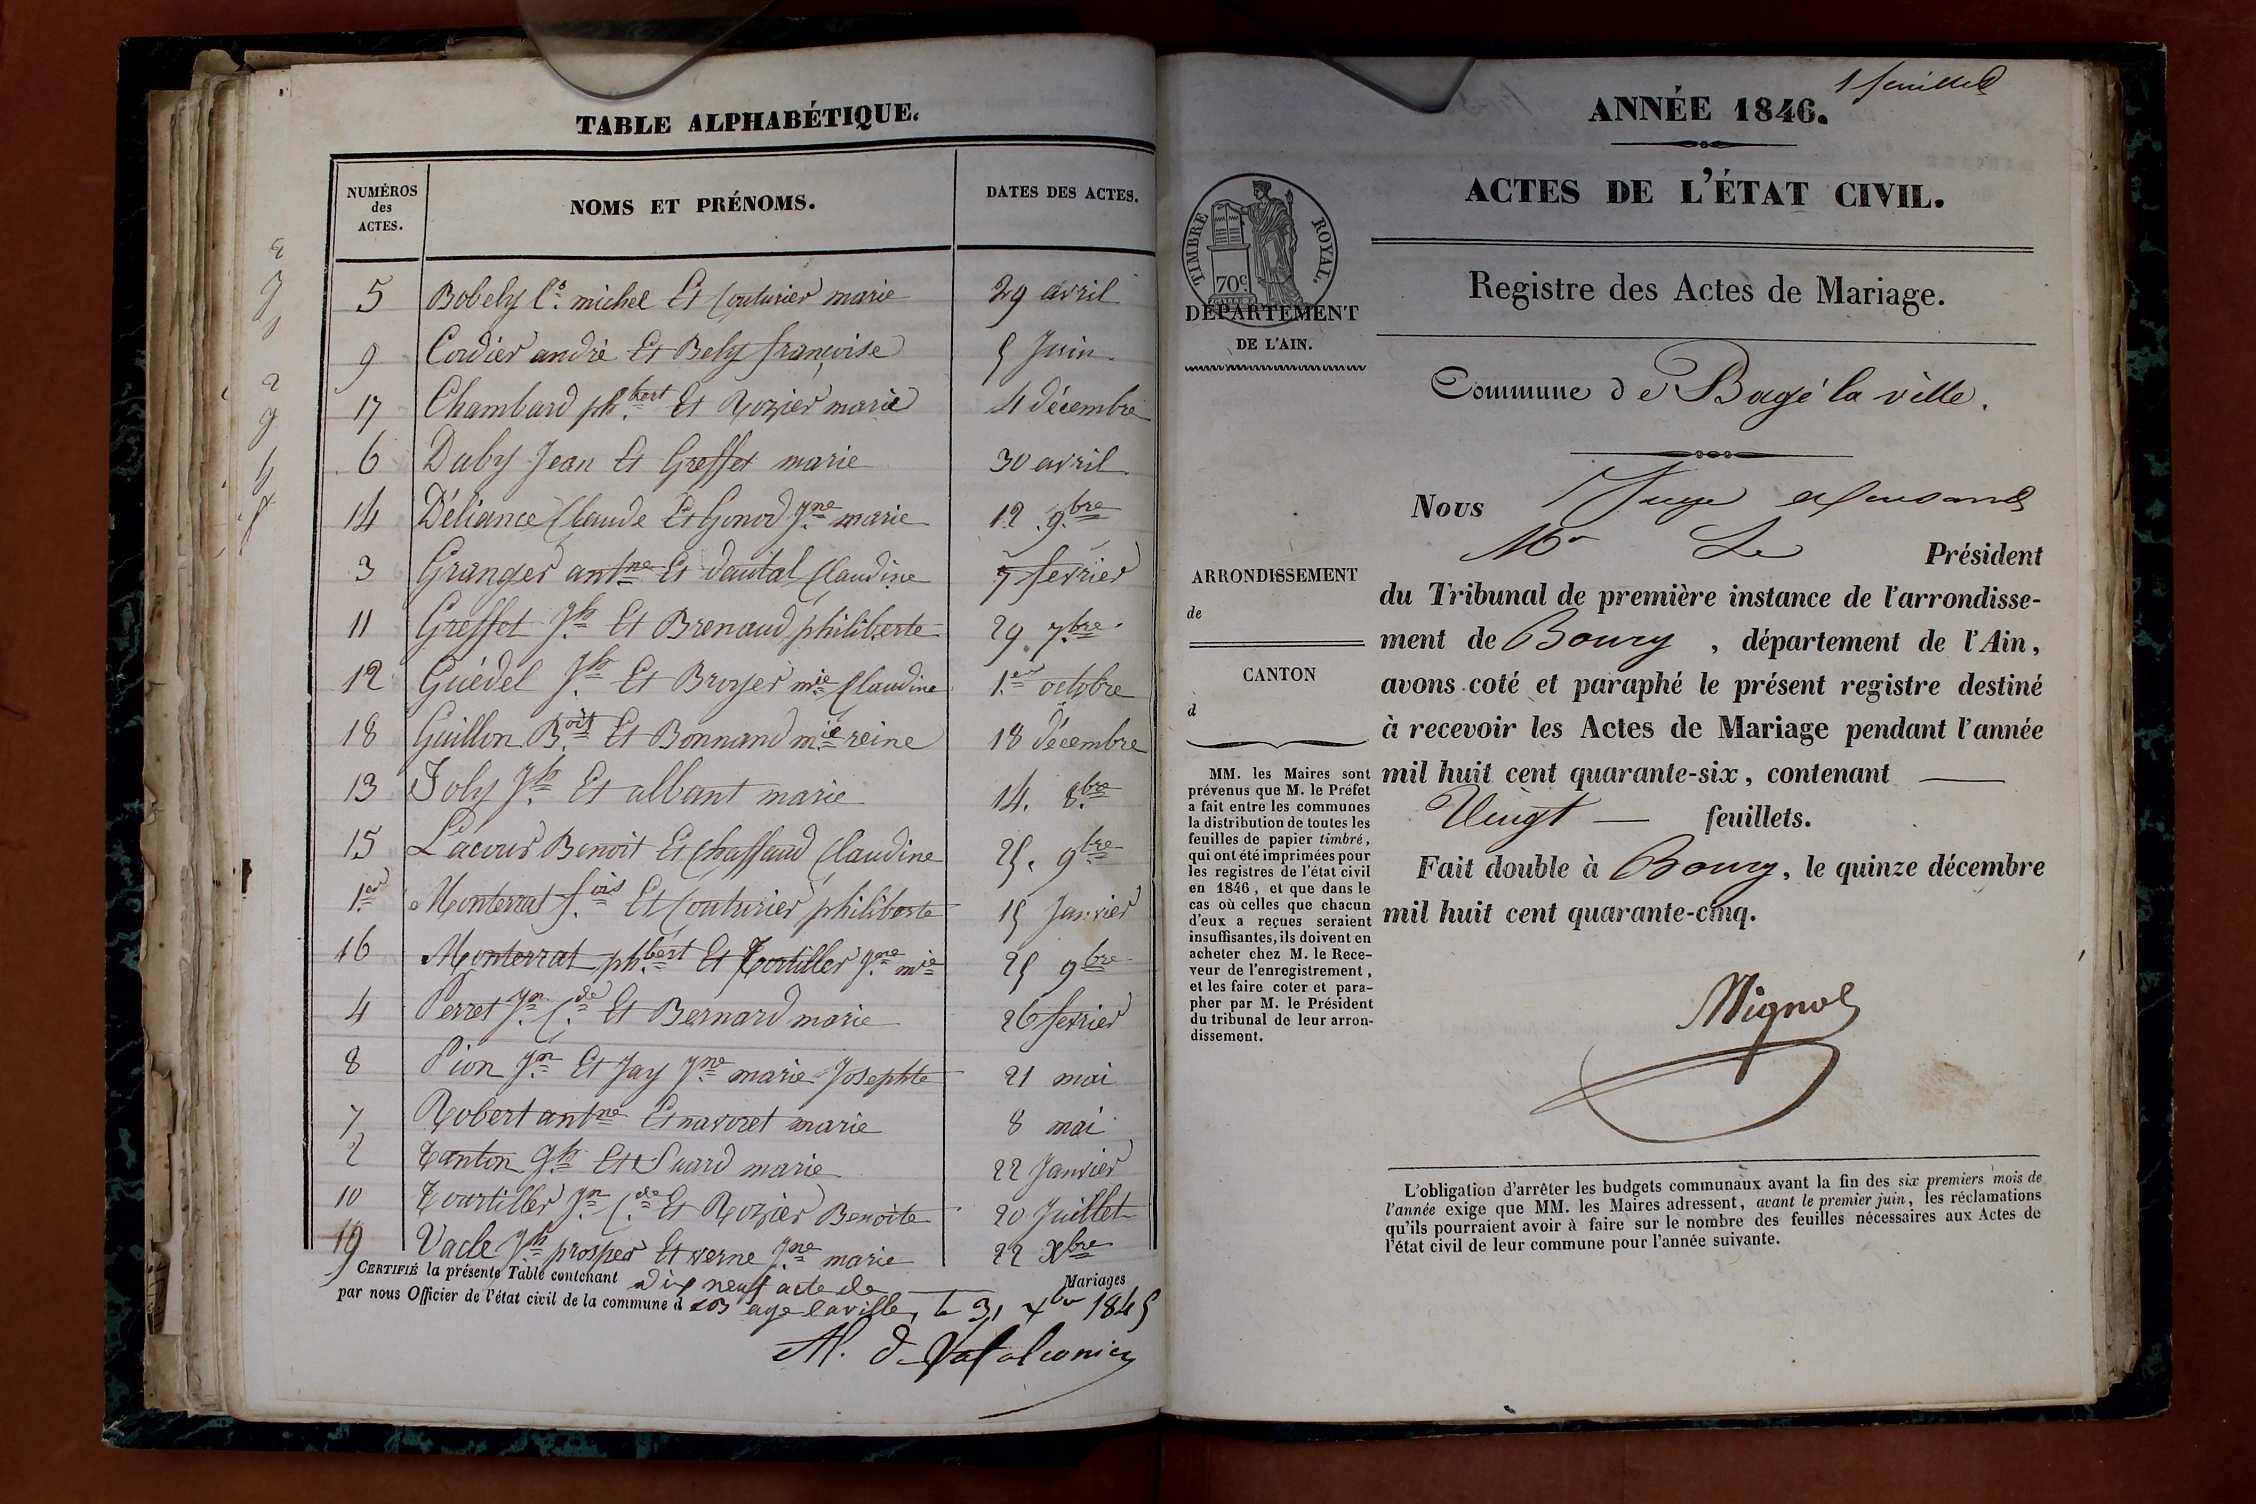 TABLE ALPHABÉTIQUE.
NUMÉROS des ACTES. NOMS ET PRÉNOMS. DATES DES ACTES.
5 Bobely Ce. michel Et Couturier marie 29 avril
9 Cordier andré Et Bely françoise 5 Juin
17 Chambard ph.bert Et Rozier marie 4 décembre
6 Duby Jean Et Greffet marie 30 avril
14 Déliance Claude Et Gonod Jne marie 12. 9.bre
3 Granger antne Et dautal Claudine 7 fevrier
11 Greffet Jh. Et Brenaud philiberte 29. 7.bre
12 Guédel Jh. Et Broyer mie Claudine 1.er octobre
18 Guillon B.oit Et Bonnand mie reine 18 décembre
13 Joly Jh. Et albant marie 14. 8.bre
15 Lacour Benoit Et Chaffaud Claudine 25. 9bre
1.er Monterrat f.ois Et Couturier philiberte 15 Janvier
16 Monterrat ph.bert Et Tortiller Jne mie 25 9bre
4 Perret Jn. C.de Et Bernard marie 26 fevrier
8 Pion Jn Et Jay Jne marie Josephte 21 mai
7 Robert antne Et navoret marie 8 mai
2 Tanton Jh. Et Suard marie 22 Janvier
10 Tourtiller Jn C.de Et Rozier Benoite 20 Juillet
19 Vacle Jh. prosper Et verne Jne marie 22 Xbre
CERTIFIÉ la présente Table contenant Dix neuf acte de Mariages
par nous Officier de l'état civil de la commune d age la ville, le 31 xbre 1845
1 feuillet
ANNÉE 1846.
ACTES DE L'ÉTAT CIVIL.
TIMBRE ROYAL.
70c
DÉPARTEMENT
DE L'AIN.
Registre des Actes de Mariage.
Commune de Bagé la ville.
Nous Juge
Mr Le Président
du Tribunal de première instance de l'arrondisse-
ment de Bourg, département de l'Ain,
avons coté et paraphé le présent registre destiné
à recevoir les Actes de Mariage pendant l'année
mil huit cent quarante-six, contenant
Vingt feuillets.
Fait double à Bourg, le quinze décembre
mil huit cent quarante-cinq.
Mignol
ARRONDISSEMENT
de
CANTON
d
MM. les Maires sont
prévenus que M. le Préfet
a fait entre les communes
la distribution de toutes les
feuilles de papier timbré,
qui ont été imprimées pour
les registres de l'état civil
en 1846, et que dans le
cas où celles que chacun
d'eux a reçues seraient
insuffisantes, ils doivent en
acheter chez M. le Rece-
veur de l'enregistrement,
et les faire coter et para-
pher par M. le Président
du tribunal de leur arron-
dissement.
L'obligation d'arrêter les budgets communaux avant la fin des six premiers mois de
l'année exige que MM. les Maires adressent, avant le premier juin, les réclamations
qu'ils pourraient avoir à faire sur le nombre des feuilles nécessaires aux Actes de
l'état civil de leur commune pour l'année suivante.